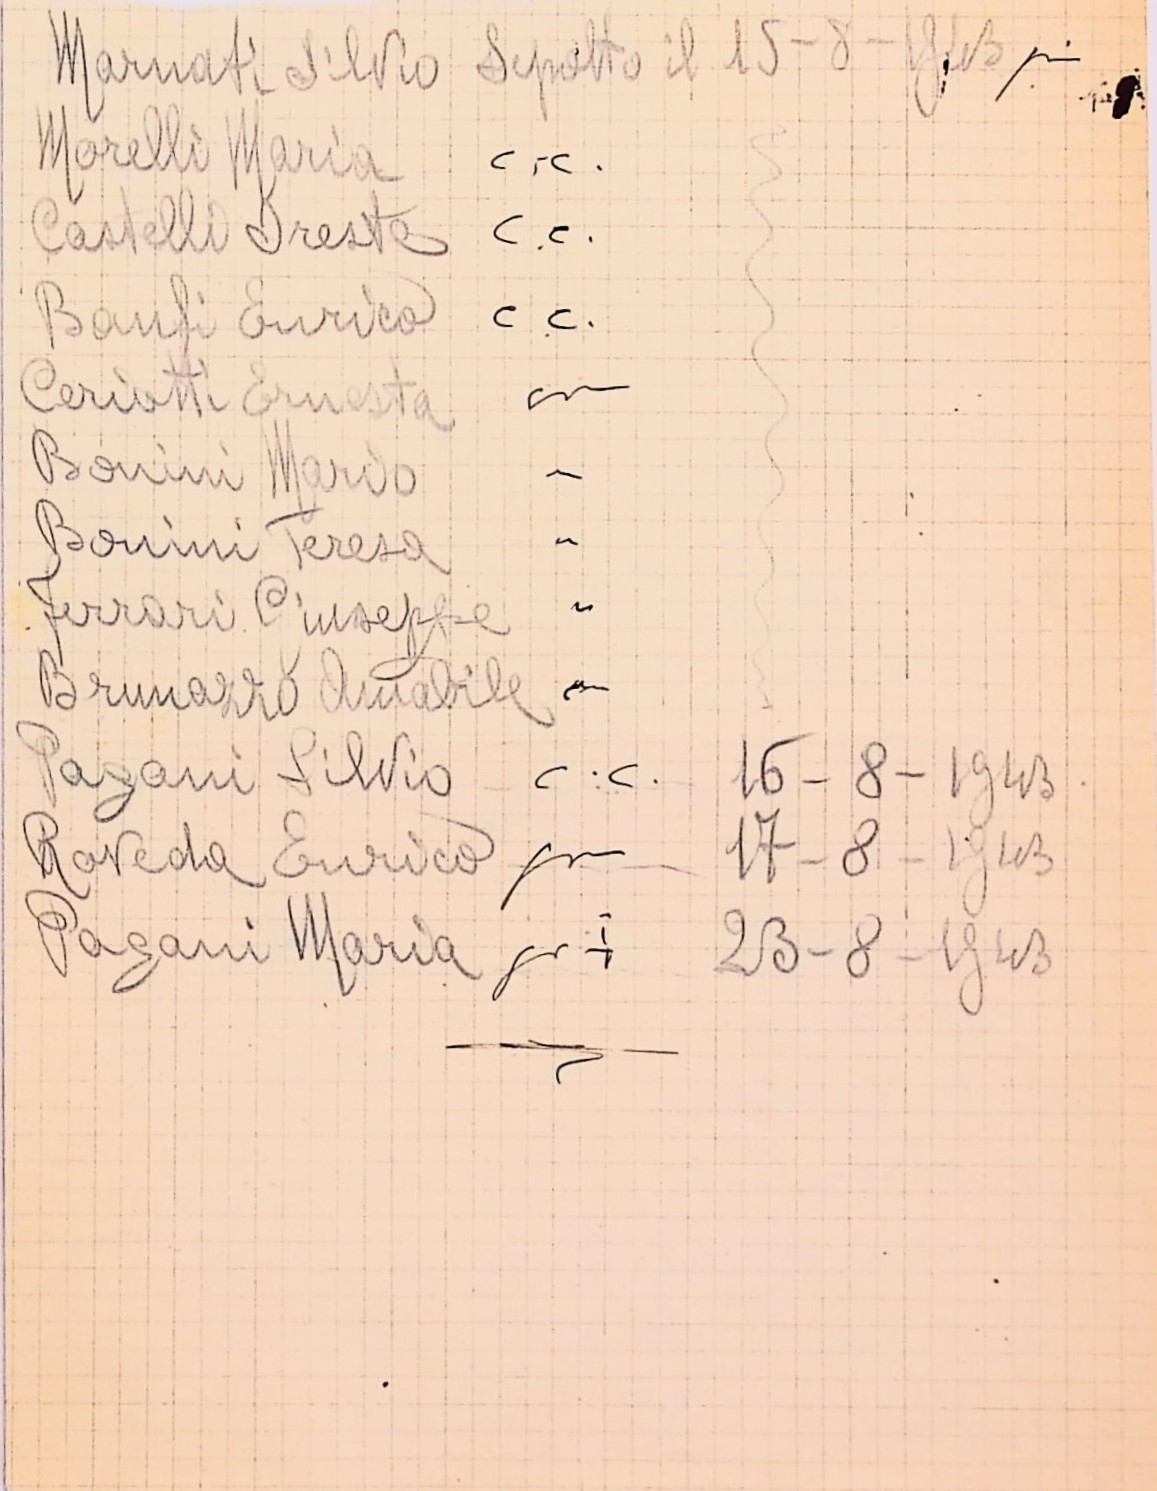 Marnati Silvio Sepolto il 15-8-1943
Morelli Maria c.c.
Castelli Oreste c.c.
Banfi Enrico c.c.
Ceriotti Ernesta
Bonini Mario "
Bonini Teresa "
Ferrari Giuseppe "
Brunazzo Amabile
Pagani Silvio c.c. 16-8-1943
Roveda Enrico 17-8-1943
Pagani Maria 23-8-1943